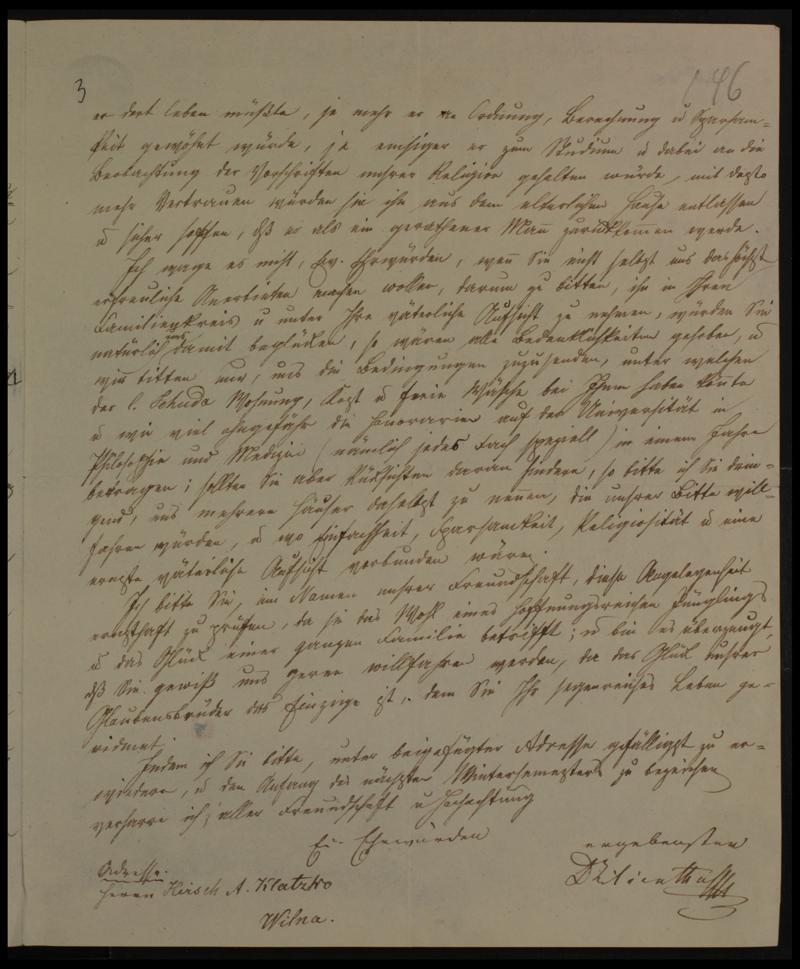 3
146
er dort leben müßte, je mehr er an Ordnung, Berechnung u Sparsam=
keit gewöhnt würde, je emsiger er zum Studium u dabei an die
Beobachtung der Vorschriften unsrer Religion gehalten würde, mit desto
mehr Vertrauen würden sie ihn aus dem elterlichen Hause entlassen
u sicher hoffen, dß er als ein gerathener Mañ zurückkom̄en werde.
Ich wage es nicht, Ew. Ehrwürden, weñ Sie nicht selbst uns das höchst
erfreuliche Anerbieten machen wollen, darum zu bitten, ihn in Ihren
Familienkreis u unter Ihre väterliche Aufsicht zu nehmen, würden Sie
natürlich uns damit beglücken, so wären alle Bedenklichkeiten gehoben, u
wir bitten nur, uns die Bedingungen zuzusenden, unter welchen
der l. Jehuda Wohnung, Kost u freie Wäsche bei Ihnen haben köñte
u wie viel ohngefähr die Honorarien auf der Universität in
Philosophie und Medizin (nämlich jedes Fach speziell) in einem Jahre
betragen; sollten Sie aber Rücksichten daran hindern, so bitte ich Sie drin=
gend, uns mehrere Häuser daselbst zu nennen, die unsrer Bitte will=
fahren würden, u wo Einfachheit, Sparsamkeit, Religiosität u eine
ernste väterliche Aufsicht verbunden wären.
Ich bitte Sie, im Namen unsrer Freundschaft, diese Angelegenheit
ernsthaft zu prüfen, da sie das Wohl eines hoffnungsreichen Jünglings
u das Glück einer ganzen Familie betrifft; u bin es überzeugt,
dß Sie gewiß uns gerne willfahren werden, da das Glück unsrer
Glaubensbrüder das Einzige ist, dem Sie Ihr segenreiches Leben ge=
widmet.
Indem ich Sie bitte, unter beigefügter Adresse gefälligst zu er=
wiedern, u den Anfang des nächsten Wintersemesters zu bezeichnen
verharre ich, aller Freundschaft u Hochachtung
Ew. Ehrwürden
ergebenster
Dr Lilienthal
Adresse:
Herrn Hirsch A. Klatzko
Wilna.